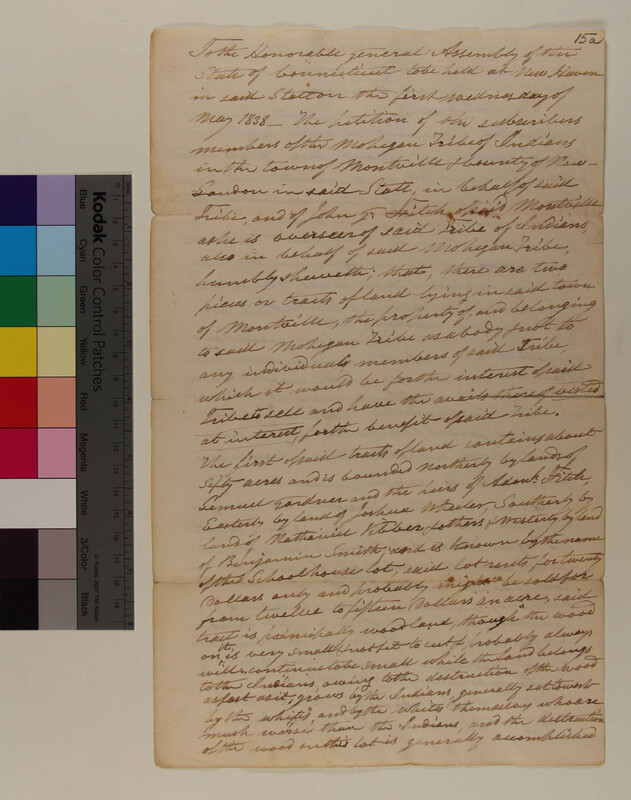 15a
To the Honorable general Assembly of the
State of Connecticut to be held at New Haven
in said State on the first wednesday of
May 1838 — The petition of the subscribers
members of the Mohegan Tribe of Indians
in the town of Montville & County of New-
London in said State, in behalf of said
Tribe, and of John G. Fitch of said Montville
as he is overseer of said Tribe of Indians,
also in behalf of said Mohegan Tribe,
humbly sheweth; that, there are two
pieces or tracts of land lying in said town
of Montville, the property of and belonging
to said Mohegan Tribe as a body & not to
any individuals members of said Tribe,
which it would be for the interest of said
Tribe to sell and have the avails thereof vested
at interest, for the benefit of said Tribe.
The first of said tracts of land contains about
fifty acres and is bounded northerly by lands of
Lemuel Gardner and the heirs of Fitch,
Easterly by land of Joshua Wheeler, Southerly by
land of Nathaniel Kibber & others, & Westerly by land
of Benjamin Smith, and is known by the name
of the School house lot, said lot rents for twenty
Dollars only and probably might be sold for
from twelve to fifteen Dollars an acre, said
tract is principally wood land, though the wood
on it is very small & not fit to cut & probably always
will continue to be small while the land belongs
to the Indians, owing to the destruction of the wood
as fast as it grows by the Indians, generally set to work
by the whites, and by the whites themselves who are
much worse than the Indians, and the destruction
of the wood on this lot is generally accomplished
Kodak Color Control Patches
Blue
Cyan
Green
Yellow
Red
Magenta
White
3/Color
Black